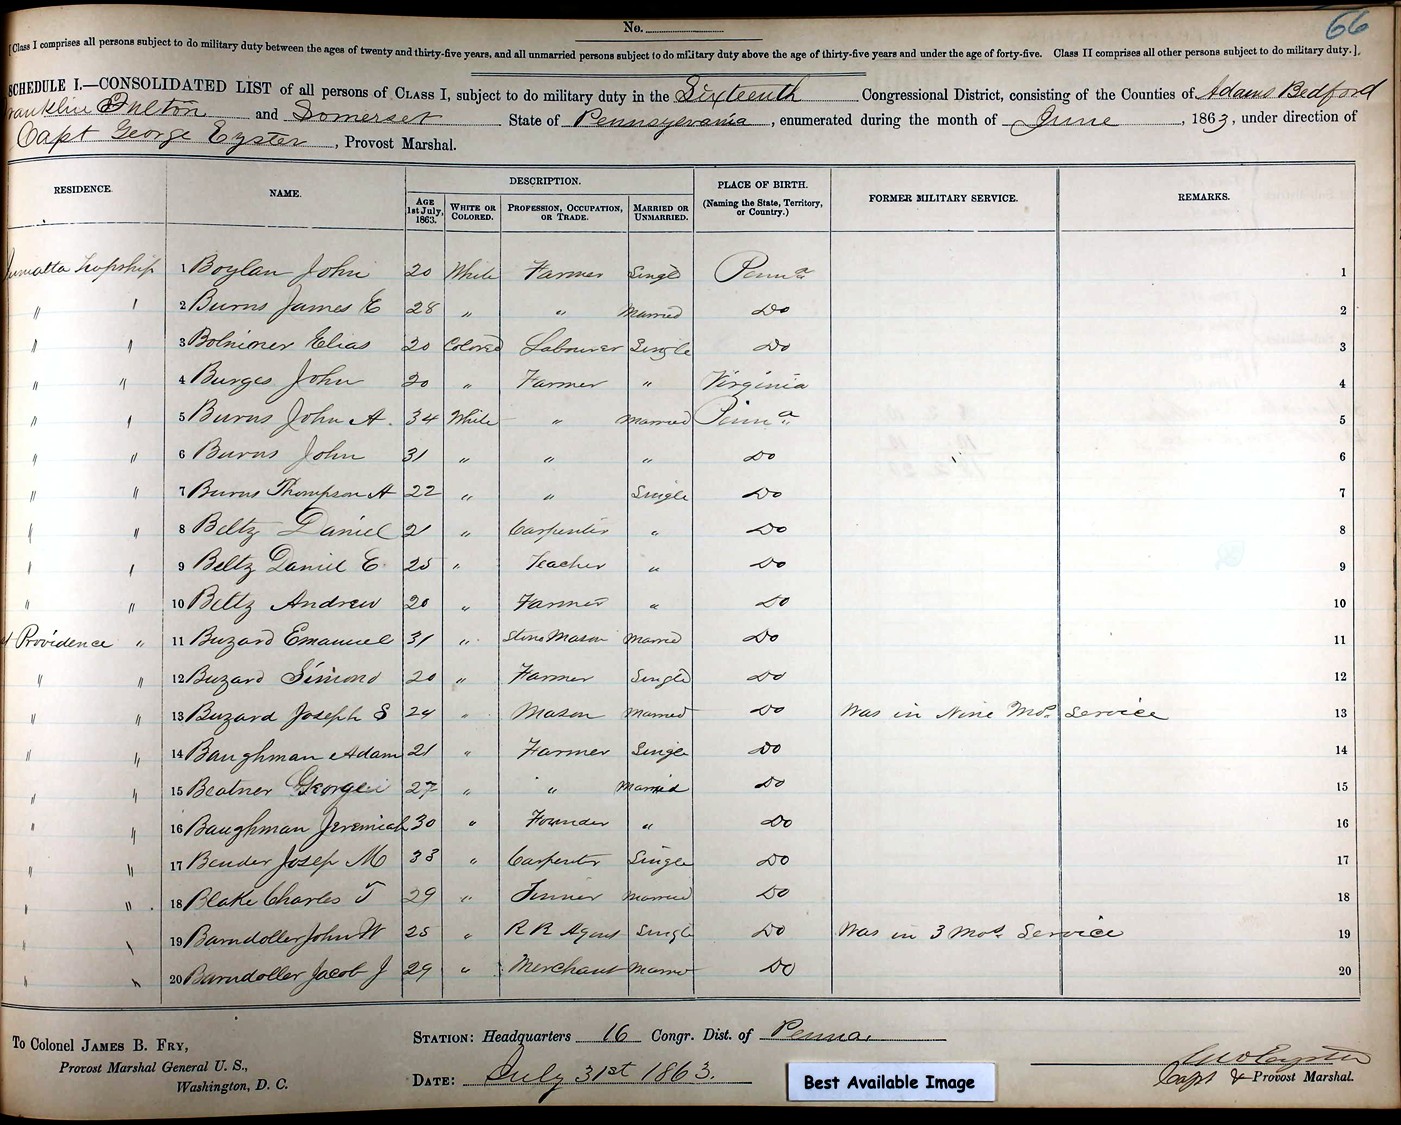 No.
66
[Class I comprises all persons subject to do military duty between the ages of twenty and thirty-five years, and all unmarried persons subject to do military duty above the age of thirty-five years and under the age of forty-five. Class II comprises all other persons subject to do military duty.]
SCHEDULE I.—CONSOLIDATED LIST of all persons of CLASS I, subject to do military duty in the Sixteenth Congressional District, consisting of the Counties of Adams Bedford
Franklin Fulton and Somerset State of Pennsylvania, enumerated during the month of June, 1863, under direction of
Capt George Eyster, Provost Marshal.
RESIDENCE. NAME. DESCRIPTION. PLACE OF BIRTH. (Naming the State, Territory, or Country.) FORMER MILITARY SERVICE. REMARKS.
AGE 1st July, 1863. WHITE OR COLORED. PROFESSION, OCCUPATION, OR TRADE. MARRIED OR UNMARRIED.
Juniatta Township 1 Boylan John 20 White Farmer Single Penna 1
" " 2 Burns James E 28 " " Married Do 2
" " 3 Elias 20 Colored Labourer Single Do 3
" " 4 Burges John 20 " Farmer " Virginia 4
" " 5 Burns John A. 34 White " Married Penna 5
" " 6 Burns John 31 " " " Do 6
" " 7 Burns Thompson A 22 " " Single Do 7
" " 8 Beltz Daniel 21 " Carpenter " Do 8
" " 9 Beltz Daniel E. 25 " Teacher " Do 9
" " 10 Beltz Andrew 20 " Farmer " Do 10
Providence " 11 Buzard Emanuel 31 " Stone Mason Married Do 11
" " 12 Buzard Simond 20 " Farmer Single Do 12
" " 13 Buzard Joseph S 24 " Mason Married Do Was in Nine Mos. Service 13
" " 14 Baughman Adam 21 " Farmer Single Do 14
" " 15 George 27 " " Married Do 15
" " 16 Baughman Jeremiah 30 " Founder " Do 16
" " 17 Bender Josep M 33 " Carpenter Single Do 17
" " 18 Blake Charles T 29 " Married Do 18
" " 19 Barndoller John W 25 " R R Agent Single Do Was in 3 Mos Service 19
" " 20 Barndoller Jacob J 29 " Merchant Married Do 20
To Colonel JAMES B. FRY,
Provost Marshal General U. S.,
Washington, D. C.
STATION: Headquarters 16 Congr. Dist. of Penna.
DATE: July 31st 1863.
Best Available Image
Geo Eyster
Capt & Provost Marshal.